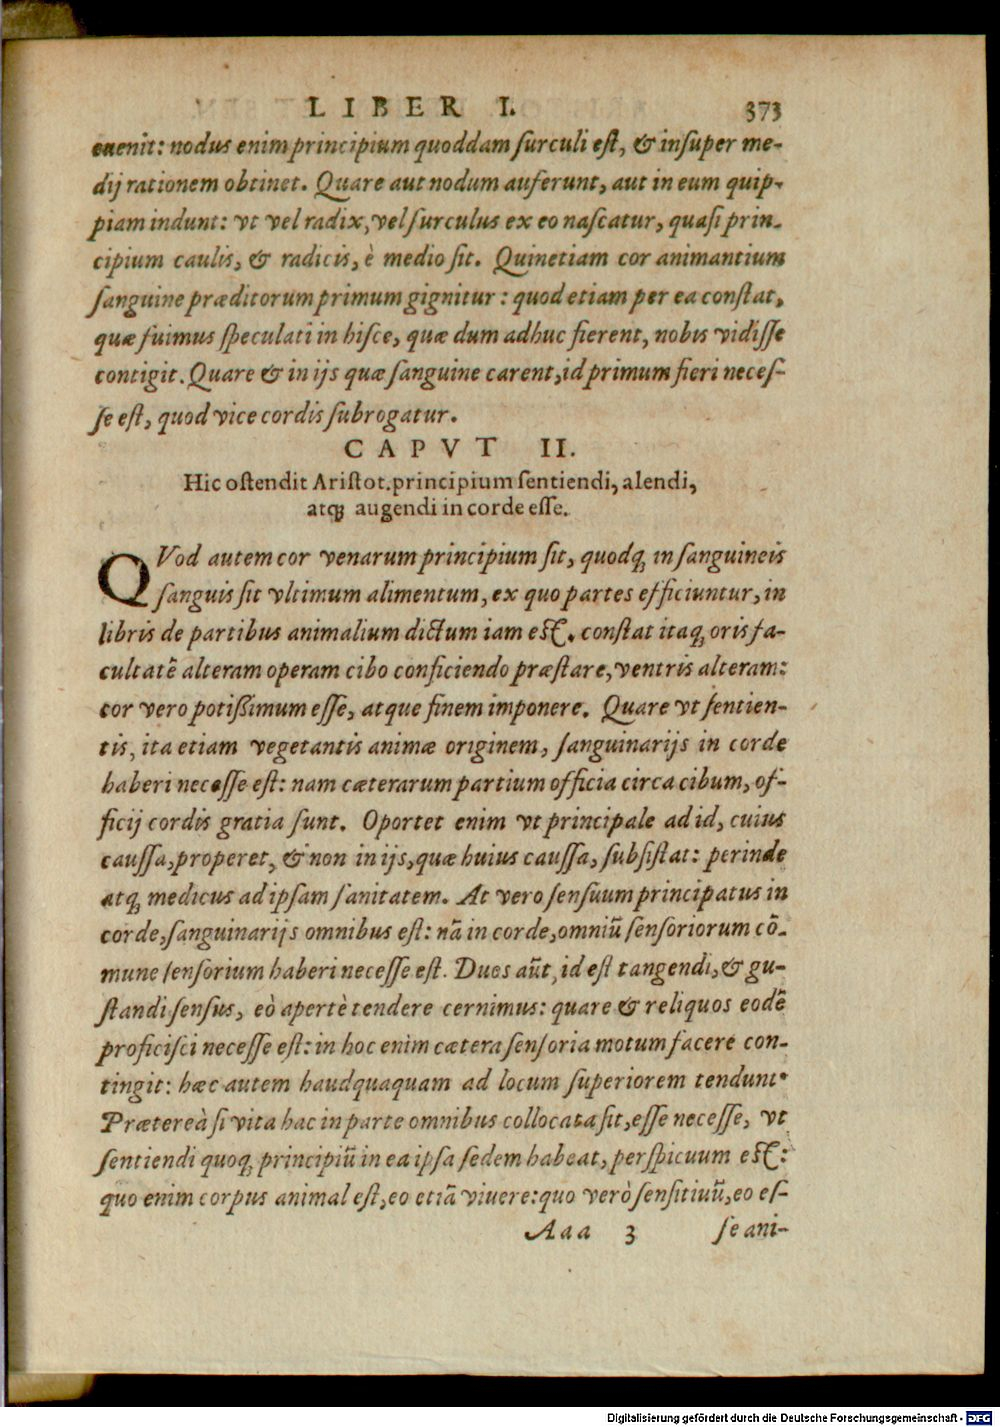 LIBER I. 373
euenit: nodus enim principium quoddam surculi est, & insuper me-
dij rationem obtinet. Quare aut nodum auferunt, aut in eum quip-
piam indunt: vt vel radix, vel surculus ex eo nascatur, quasi prin-
cipium caulis, & radicis, è medio sit. Quinetiam cor animantium
sanguine præditorum primum gignitur: quod etiam per ea constat,
quæ fuimus speculati in hisce, quæ dum adhuc fierent, nobis vidisse
contigit. Quare & in ijs quæ sanguine carent, id primum fieri neces-
se est, quod vice cordis subrogatur.
CAPVT II.
Hic ostendit Aristot. principium sentiendi, alendi,
atq; augendi in corde esse.
QVod autem cor venarum principium sit, quodq; in sanguineis
sanguis sit vltimum alimentum, ex quo partes efficiuntur, in
libris de partibus animalium dictum iam est. constat itaq; oris fa-
cultatē alteram operam cibo conficiendo præstare, ventris alteram:
cor vero potißimum esse, atque finem imponere. Quare vt sentien-
tis, ita etiam vegetantis animæ originem, sanguinarijs in corde
haberi necesse est: nam cæterarum partium officia circa cibum, of-
ficij cordis gratia sunt. Oportet enim vt principale ad id, cuius
caussa, properet, & non in ijs, quæ huius caussa, subsistat: perinde
atq; medicus ad ipsam sanitatem. At vero sensuum principatus in
corde, sanguinarijs omnibus est: nā in corde, omniū sensoriorum cō-
mune sensorium haberi necesse est. Duos aūt, id est tangendi, & gu-
standi sensus, eò apertè tendere cernimus: quare & reliquos eodē
proficisci necesse est: in hoc enim cætera sensoria motum facere con-
tingit: hæc autem haudquaquam ad locum superiorem tendunt.
Prætereà si vita hac in parte omnibus collocata sit, esse necesse, vt
sentiendi quoq; principiū in ea ipsa sedem habeat, perspicuum est:
quo enim corpus animal est, eo etiā viuere: quo verò sensitiuū, eo es-
Aaa 3 se ani-
Digitalisierung gefördert durch die Deutsche Forschungsgemeinschaft - DFG